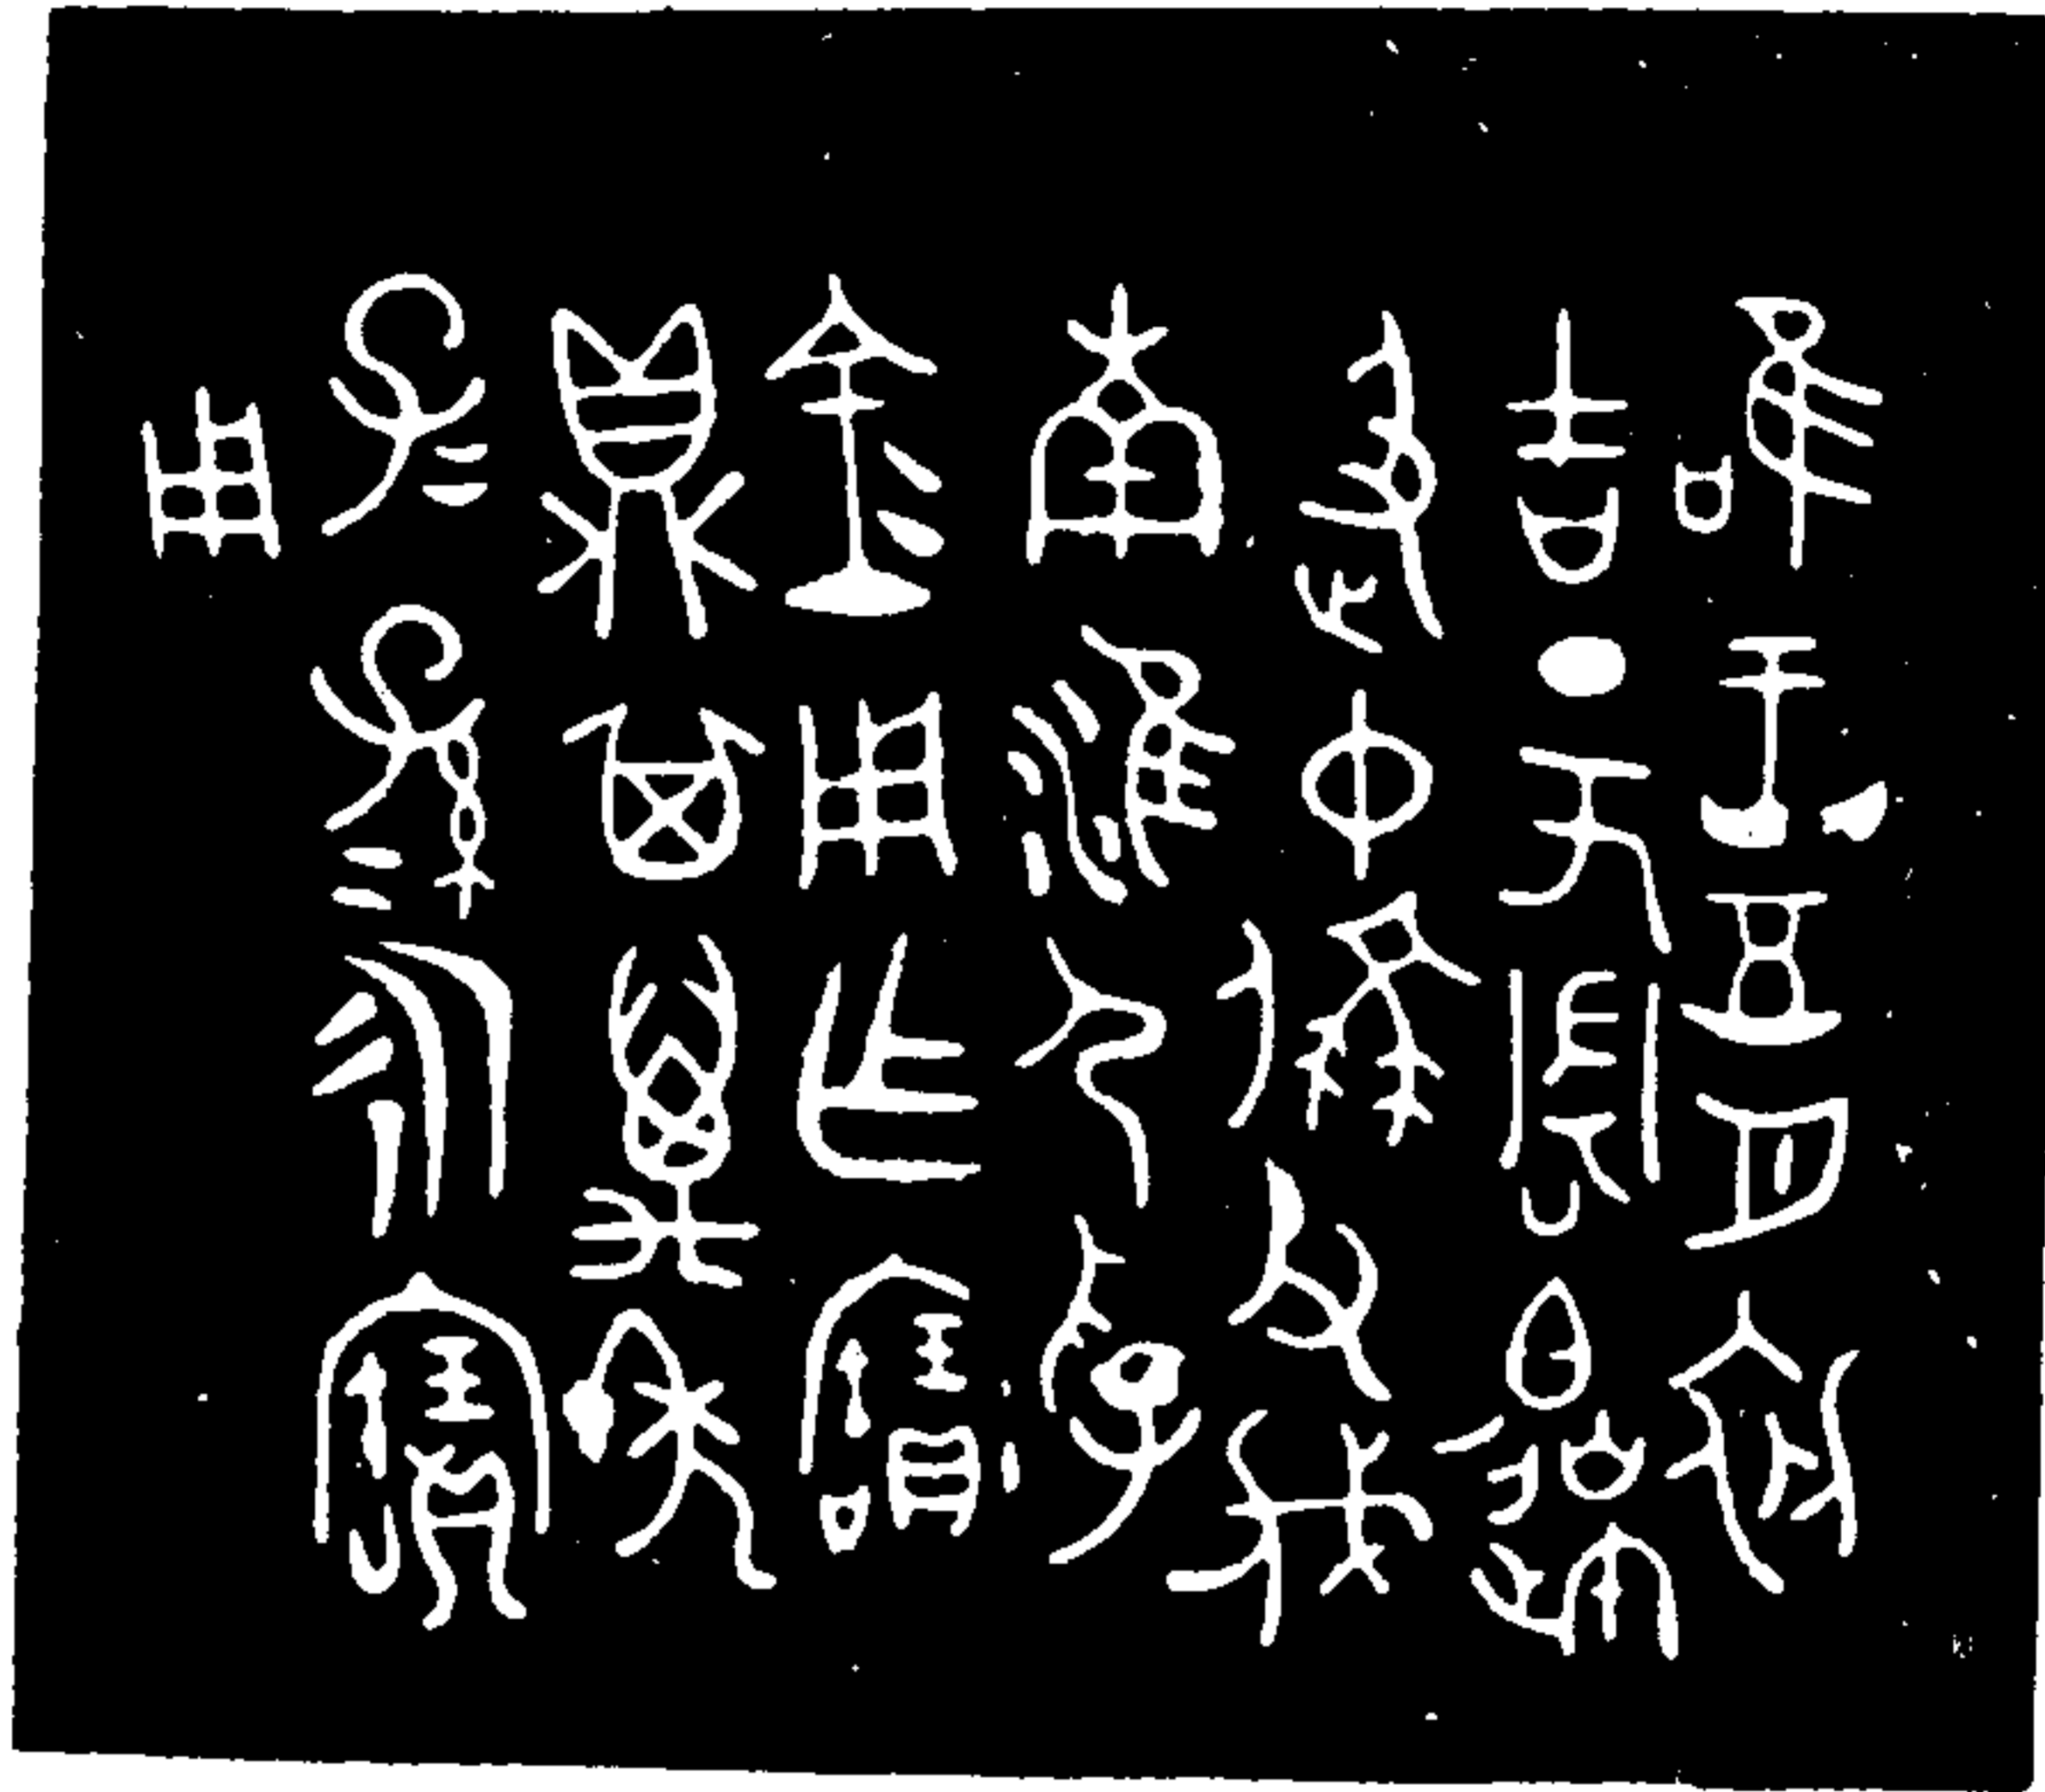 唯王五月初
吉丁亥周伯邊
及中偯父伐
南淮尸孚
金用乍寶
鼎其萬年
子=孫=永寶
用